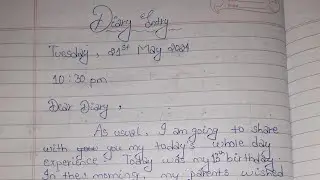 Diary Entry
Tuesday, 21st May 2021
10:30 pm
Dear Diary,
As usual, I am going to share
with you you my today's whole day
experience. Today was my 13th birthday.
In the morning, my parents wished